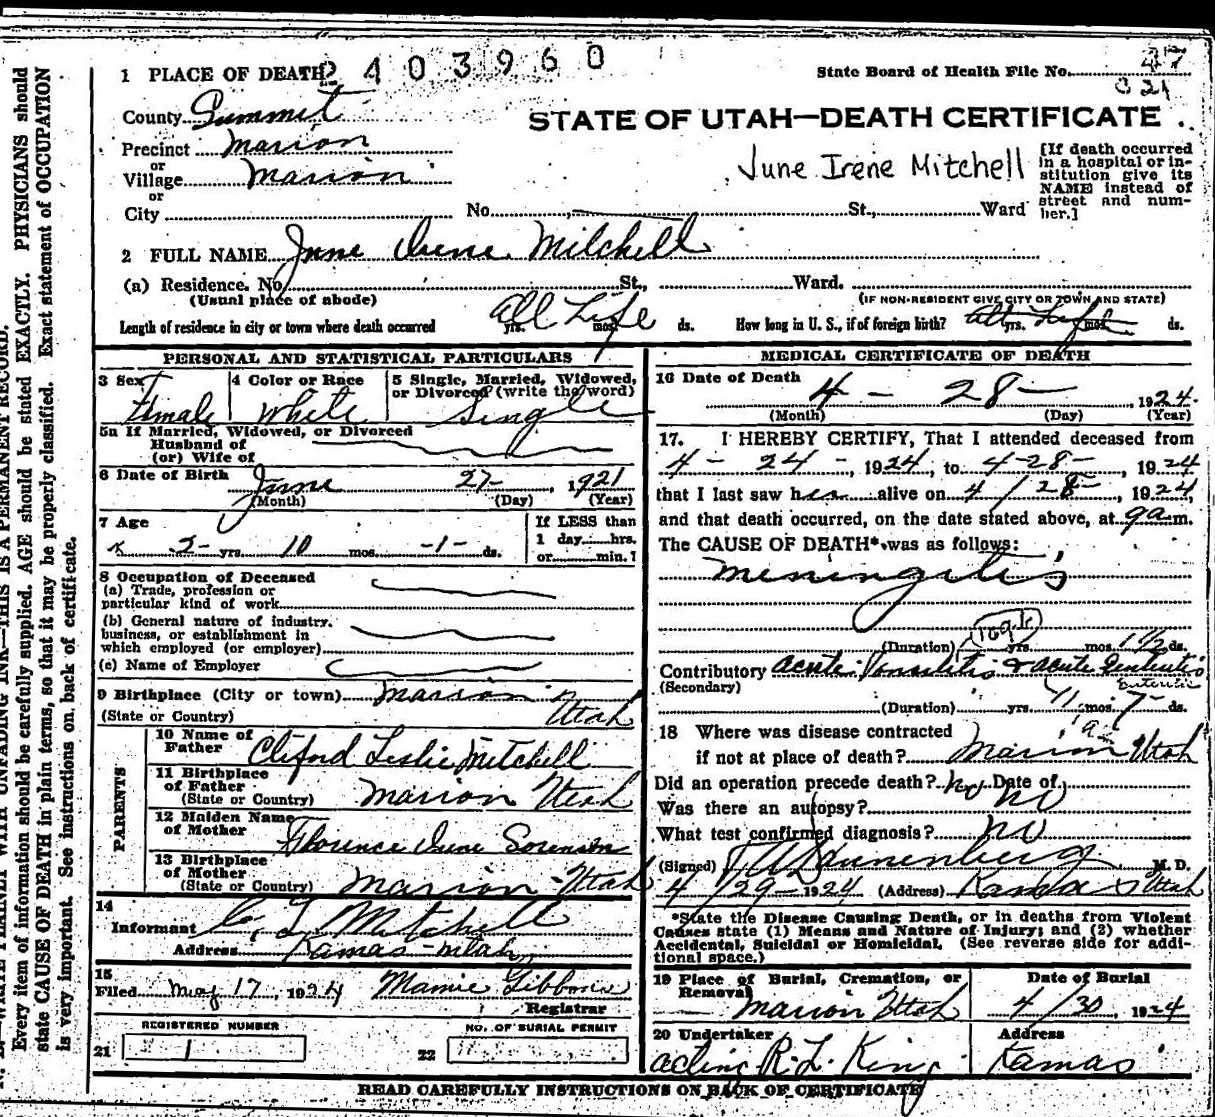 2403960
1 PLACE OF DEATH
State Board of Health File No. 47
321
County Summit
STATE OF UTAH—DEATH CERTIFICATE
Precinct Marion
or
Village Marion
or
City No. St., Ward
June Irene Mitchell
[If death occurred
in a hospital or in-
stitution give its
NAME instead of
street and num-
ber.]
2 FULL NAME June Irene Mitchell
(a) Residence. No. St., Ward.
(Usual place of abode)
(IF NON-RESIDENT GIVE CITY OR TOWN AND STATE)
Length of residence in city or town where death occurred All Life yrs. mos. ds. How long in U. S., if of foreign birth? All Life yrs. mos. ds.
PERSONAL AND STATISTICAL PARTICULARS
3 Sex Female
4 Color or Race White
5 Single, Married, Widowed,
or Divorced (write the word)
Single
5a If Married, Widowed, or Divorced
Husband of
(or) Wife of
6 Date of Birth June 27- , 1921
(Month) (Day) (Year)
7 Age
2- yrs. 10 mos. -1- ds.
If LESS than
1 day hrs.
or min.?
8 Occupation of Deceased
(a) Trade, profession or
particular kind of work
(b) General nature of industry.
business, or establishment in
which employed (or employer)
(c) Name of Employer
9 Birthplace (City or town) Marion
(State or Country) Utah
PARENTS
10 Name of
Father Cliford Leslie Mitchell
11 Birthplace
of Father
(State or Country) Marion Utah
12 Maiden Name
of Mother Florence Irene Sorensen
13 Birthplace
of Mother
(State or Country) Marion - Utah
14
Informant C. L. Mitchell
Address Kamas - Utah
15
Filed May 17, 1924 Mamie Gibbons
Registrar
REGISTERED NUMBER
21 1
NO. OF BURIAL PERMIT
22
MEDICAL CERTIFICATE OF DEATH
16 Date of Death
4 - 28 - , 1924.
(Month) (Day) (Year)
17. I HEREBY CERTIFY, That I attended deceased from
4 - 24 - , 1924, to 4-28- , 1924
that I last saw her alive on 4/28- , 1924,
and that death occurred, on the date stated above, at 9 a.m.
The CAUSE OF DEATH* was as follows:
Meningitis
(Duration) yrs. mos. 1 1/2 ds.
Contributory acute Tonsilitis & acute
(Secondary)
(Duration) yrs. mos. 7- ds.
18 Where was disease contracted
if not at place of death? Marion Utah
Did an operation precede death? no Date of
Was there an autopsy? no
What test confirmed diagnosis? no
(Signed) Dannenberg M. D.
4/29-1924 (Address) Kamas Utah
*State the Disease Causing Death, or in deaths from Violent
Causes state (1) Means and Nature of Injury; and (2) whether
Accidental, Suicidal or Homicidal. (See reverse side for addi-
tional space.)
19 Place of Burial, Cremation, or
Removal
Marion Utah
Date of Burial
4/30 1924
20 Undertaker
acting R. L. King
Address
Kamas
READ CAREFULLY INSTRUCTIONS ON BACK OF CERTIFICATE
WRITE PLAINLY WITH UNFADING INK—THIS IS A PERMANENT RECORD.
Every item of information should be carefully supplied. AGE should be stated EXACTLY. PHYSICIANS should
state CAUSE OF DEATH in plain terms, so that it may be properly classified. Exact statement of OCCUPATION
is very important. See instructions on back of certificate.